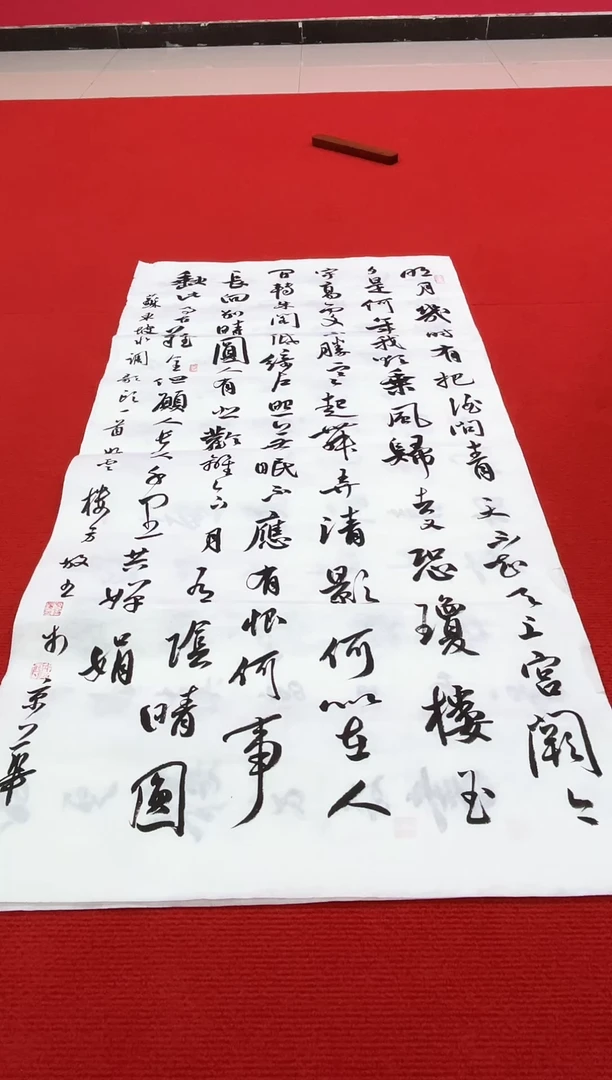 明月幾時有把酒問青天不知天上宮闕今
夕是何年我欲乘風歸去又恐瓊樓玉
宇高處不勝寒起舞弄清影何似在人
間轉朱閣低綺户照無眠不應有恨何事
長向別時圓人有悲歡離合月有陰晴圓
缺此事古難全但願人長久千里共嬋娟
蘇東坡水調歌頭一首 於京華